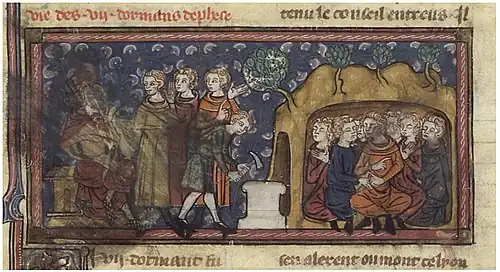 vie des .vii. dormans dephese
tenu le conseil entreus . Il
vii. dormant fu
sen alerent ou mont celyon